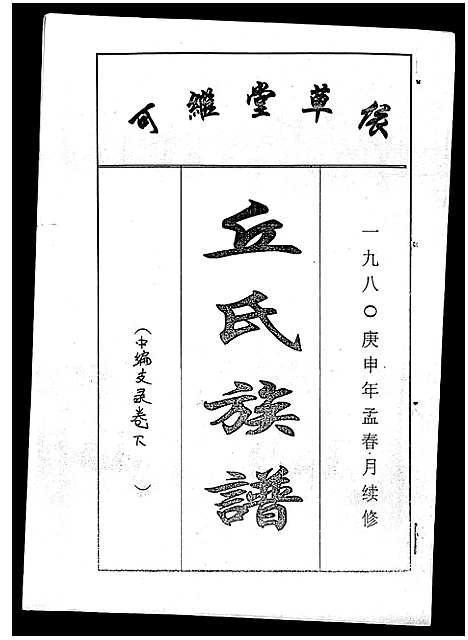 可繼堂草
一九八〇庚申年孟春·月续修
丘氏族譜
(中编支录卷下 )